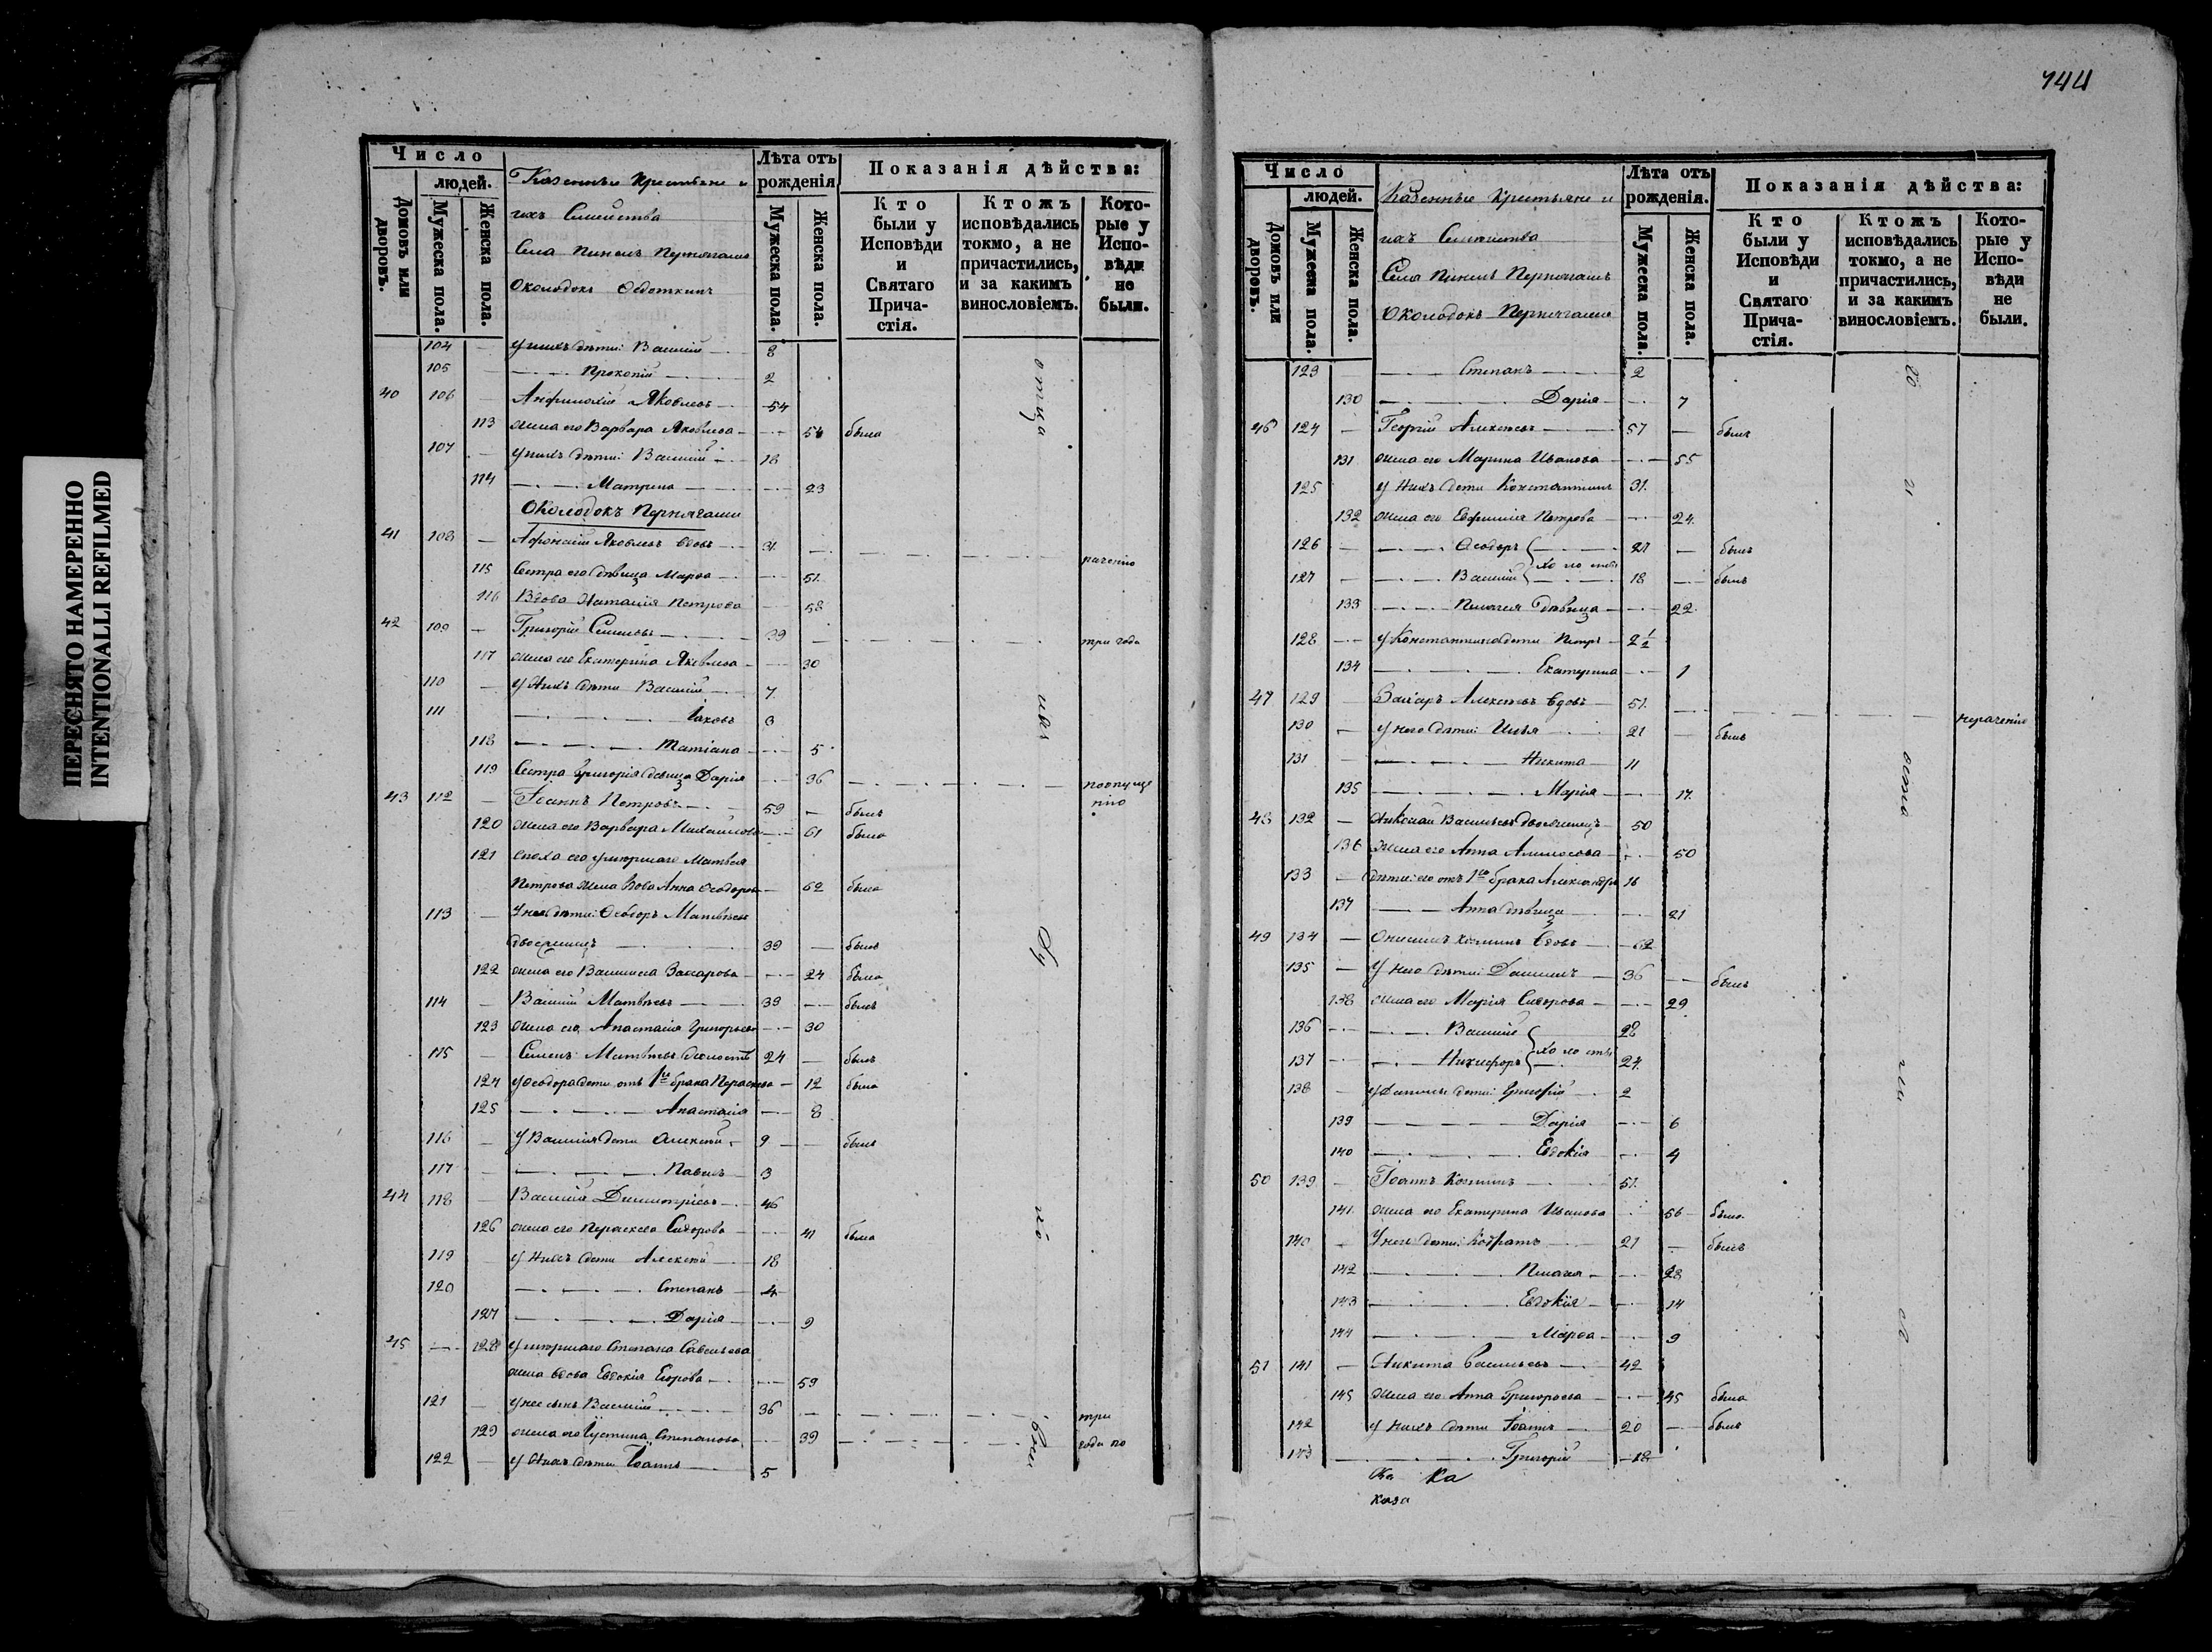 ПЕРЕСНЯТО НАМЕРЕННО
INTENTIONALLI REFILMED
Число
людей.
Домовъ или дворовъ.
Мужеска пола.
Женска пола.
Казенные Крестьяне и
ихъ Семейства
Села
Околодокъ Ѳедоткинъ
Лѣта отъ рожденія
Мужеска пола.
Женска пола.
Показанія дѣйства:
Кто были у Исповѣди и Святаго Прича-стія.
Ктожъ исповѣдались токмо, а не причастились, и за какимъ винословіемъ.
Кото-рые у Испо-вѣди не были.
104 — у нихъ дѣти: Василій — 8
105 — Прокопій — 2
40 106 — Яковлевъ — 54
113 жена его Варвара Яковлева — 54 была
107 — у нихъ дѣти: Василій — 18
114 — Матрина — 23
Околодокъ
41 108 — Яковлевъ вдовъ — 31
115 Сестра его дѣвица Марѳа — 51
116 Вдова Наталія Петрова — 58
42 109 — Григорій — 39 — три года
117 жена его Екатерина Яковлева — 30
110 — у нихъ дѣти Василій — 7
111 — Іаковъ 3
118 — Татіана — 5
119 Сестра Григорія дѣвица Дарія — 36
43 112 — Іоаннъ Петровъ — 59 — былъ
120 жена его Варвара Михайлова — 61 была
121 сноха его умершаго Матвея
Петрова жена вдова Анна Ѳеодорова — 62 была
113 — У нея дѣти: Ѳеодоръ Матвѣевъ
двоеженецъ — 39 — былъ
122 жена его Василиса Захарова — 24 была
114 — Василій Матвѣевъ — 33 — былъ
123 жена его Анастасія Григорьева — 30
115 — Семенъ Матвѣевъ холостъ 24 — былъ
124 у Ѳеодора дѣти отъ 1го брака Параскева — 12 была
125 — Анастасія — 8
116 — У Василія дѣти Алексѣй 9 — былъ
117 — Павелъ 3
44 118 — Василій Димитріевъ — 46
126 жена его Параскева Сидорова — 41 была
119 у нихъ дѣти Алексѣй — 18
120 — Степанъ — 4
127 — Дарія — 9
45 — 128 Умершаго Степана Савельева
жена вдова Евдокія Егорова — 59
121 — у нее сынъ Василій — 36 — три
129 жена его Устина Степанова — 39 — года по
122 — у нихъ дѣти Іоаннъ — 5
144
Число
людей.
Домовъ или дворовъ.
Мужеска пола.
Женска пола.
Казенные Крестьяне и
ихъ Семейства
Села
Околодокъ
Лѣта отъ рожденія.
Мужеска пола.
Женска пола.
Показанія дѣйства:
Кто были у Исповѣди и Святаго Прича-стія.
Ктожъ исповѣдались токмо, а не причастились, и за какимъ винословіемъ.
Кото-рые у Испо-вѣди не были.
123 — Степанъ — 2
130 — Дарія — 7
46 124 — Георгій Алексѣевъ — 57 — былъ
131 жена его Марина Иванова — 55
125 у нихъ дѣти Константинъ 31
132 жена его Евфимія Петрова — 24
126 — Ѳеодоръ — 27 — былъ
холосты
127 — Василій — 18 — былъ
133 — Пелагея дѣвица — 22
128 — у Константина дѣти Петръ — 2 1/2
134 — Екатерина — 1
47 129 Захаръ Алексѣевъ вдовъ — 51 — нераченію
130 — у него дѣти: Илья — 21 — былъ
131 — Никита — 11
135 — Марія — 17
48 132 — Николай Васильевъ двоеженецъ — 50
136 жена его Анна — 50
133 — дѣти его отъ 1го брака Александръ 16
137 — Анна дѣвица — 21
49 134 — вдовъ — 62
135 — У него дѣти: Даніилъ — 36 — былъ
138 жена его Марія Сидорова — 29
136 — Василій 28
холосты
137 — Никифоръ 24
138 — у Даніила дѣти: Григорій — 2
139 — Дарія — 6
140 — Евдокія — 4
50 139 — Іоаннъ — 51
141 жена его Екатерина Иванова — 56 — была
140 — У нихъ дѣти: Кодратъ — 21 — былъ
142 — Пелагея — 28
143 — Евдокія — 14
144 — Марѳа — 9
51 141 — Никита Васильевъ — 42
145 жена его Анна Григорьева — 45 была
142 у нихъ дѣти Іоаннъ — 20 — былъ
143 — Григорій — 18
Ка
каза